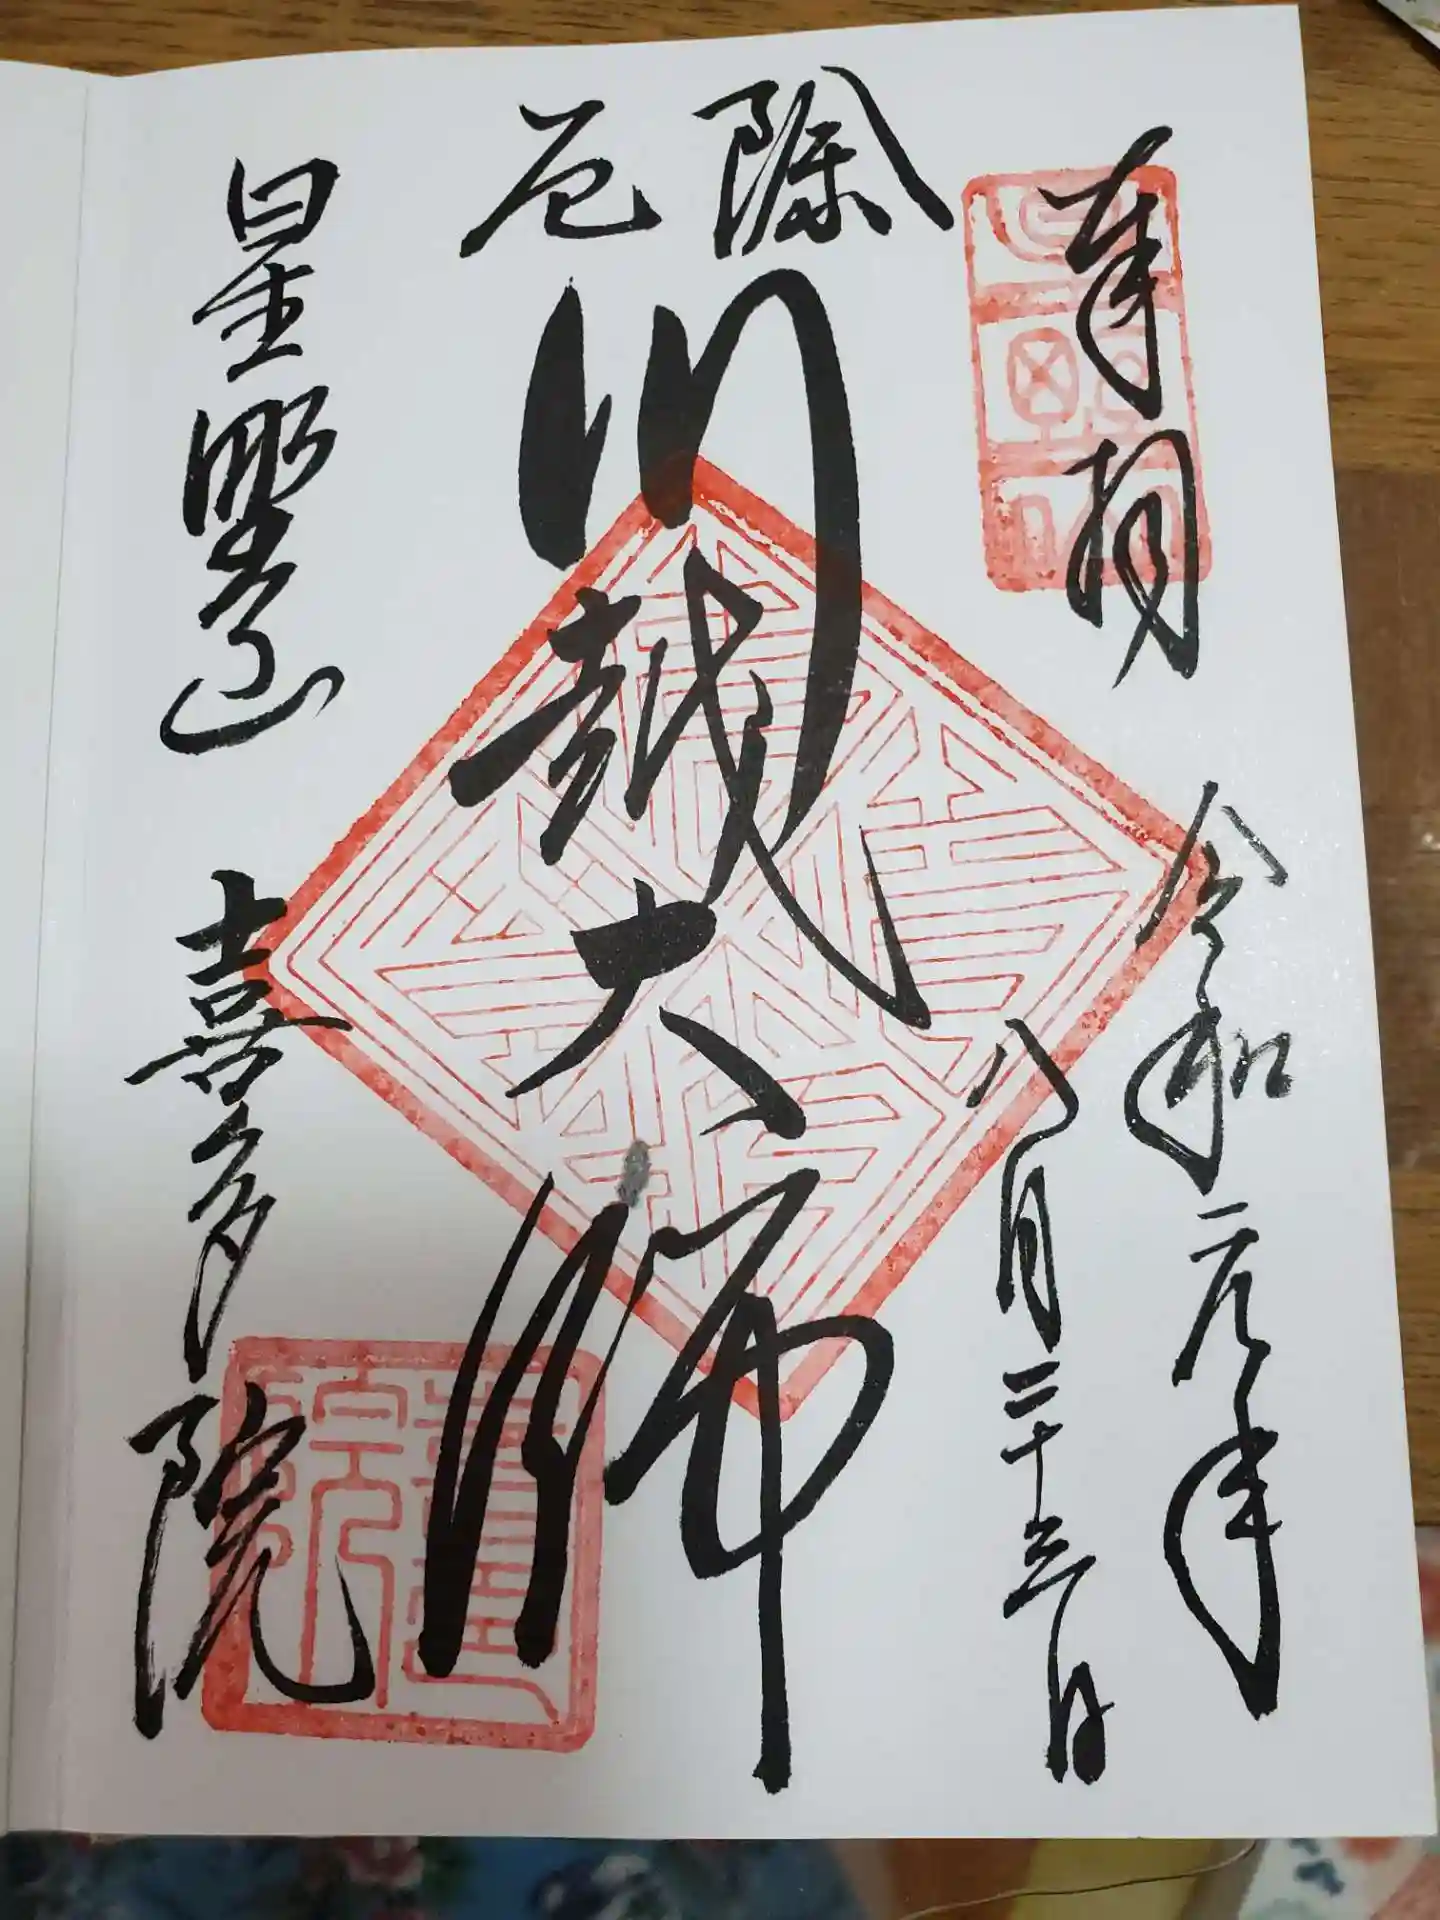 奉拝
令和元年
八月二十三日
除厄
川越大師
星野山
喜多院